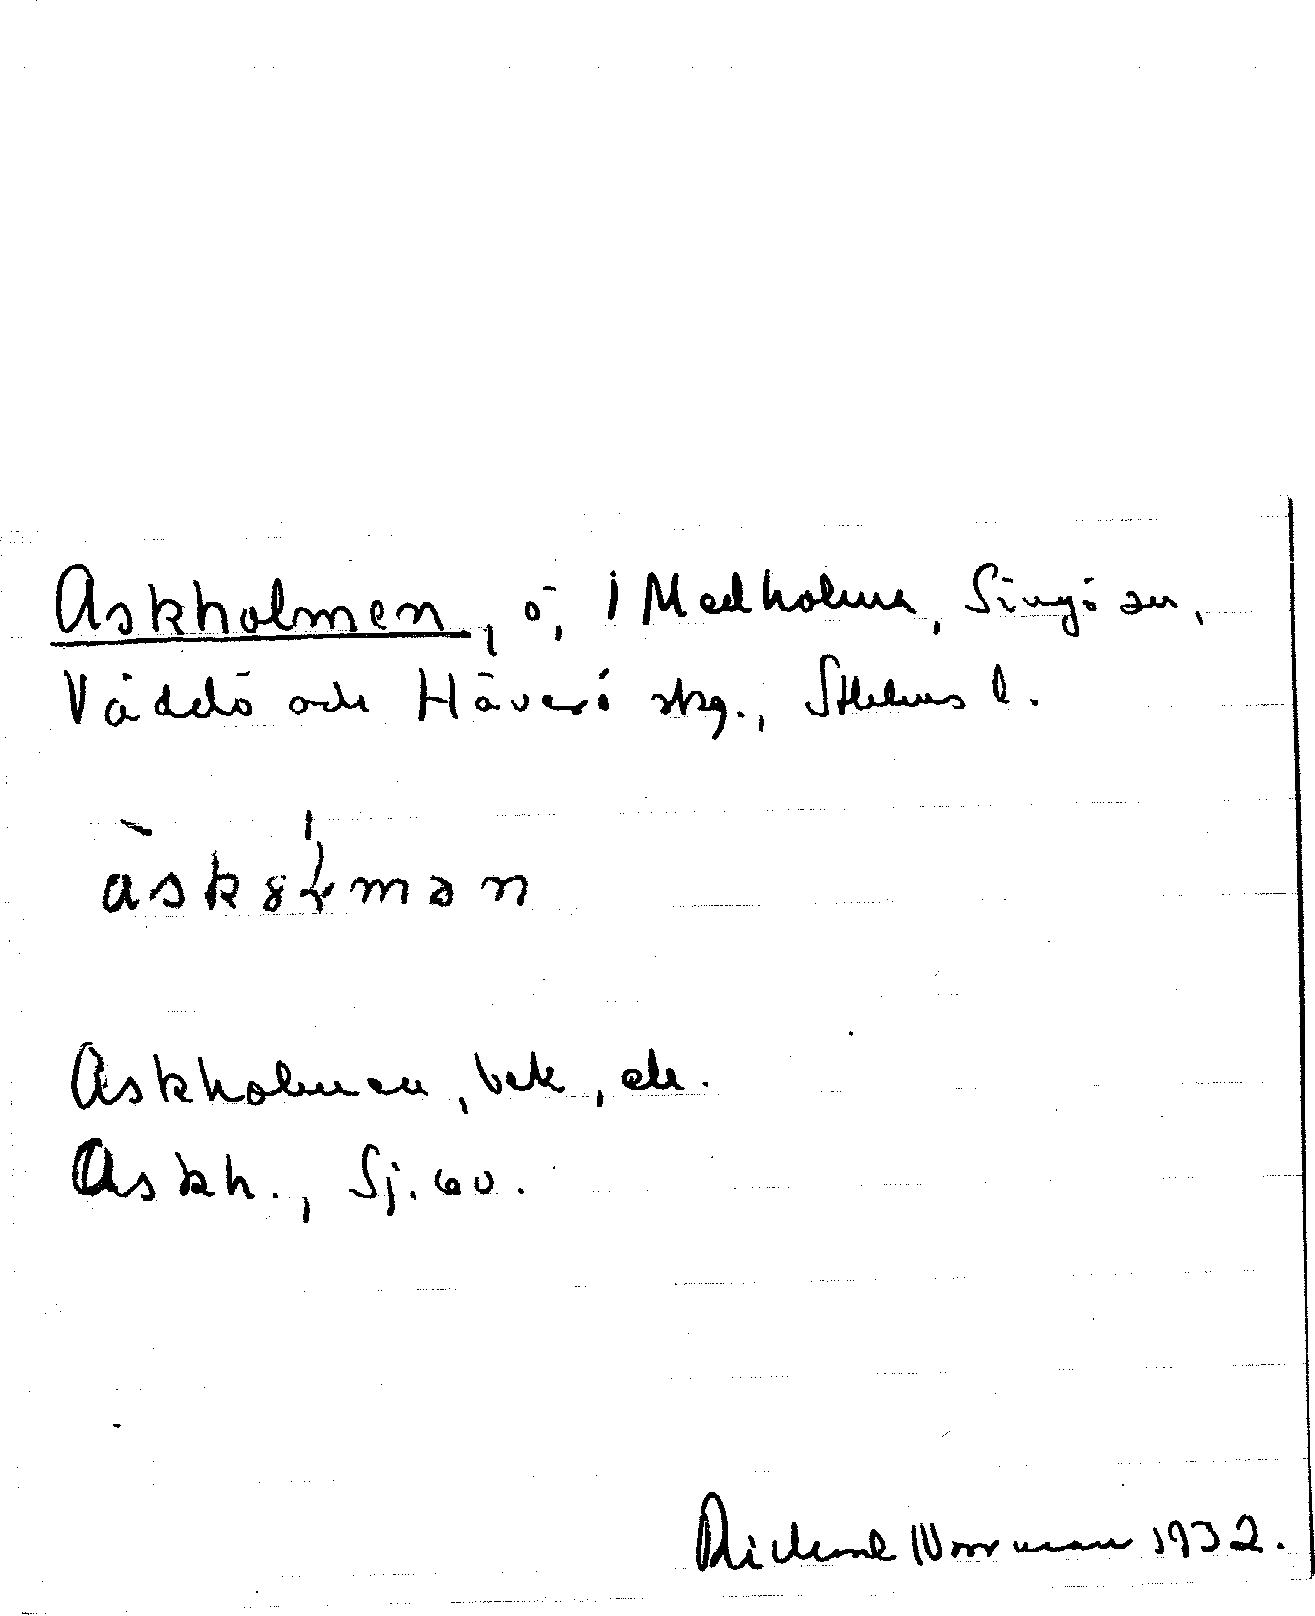 Askholmen, ö, i Medholma, Singö sn,
Väddö och Häverö skg., Sthlms l.
Askholmen, bek, ek.
Askh., Sj. 60.
Richard Norrman 1932.